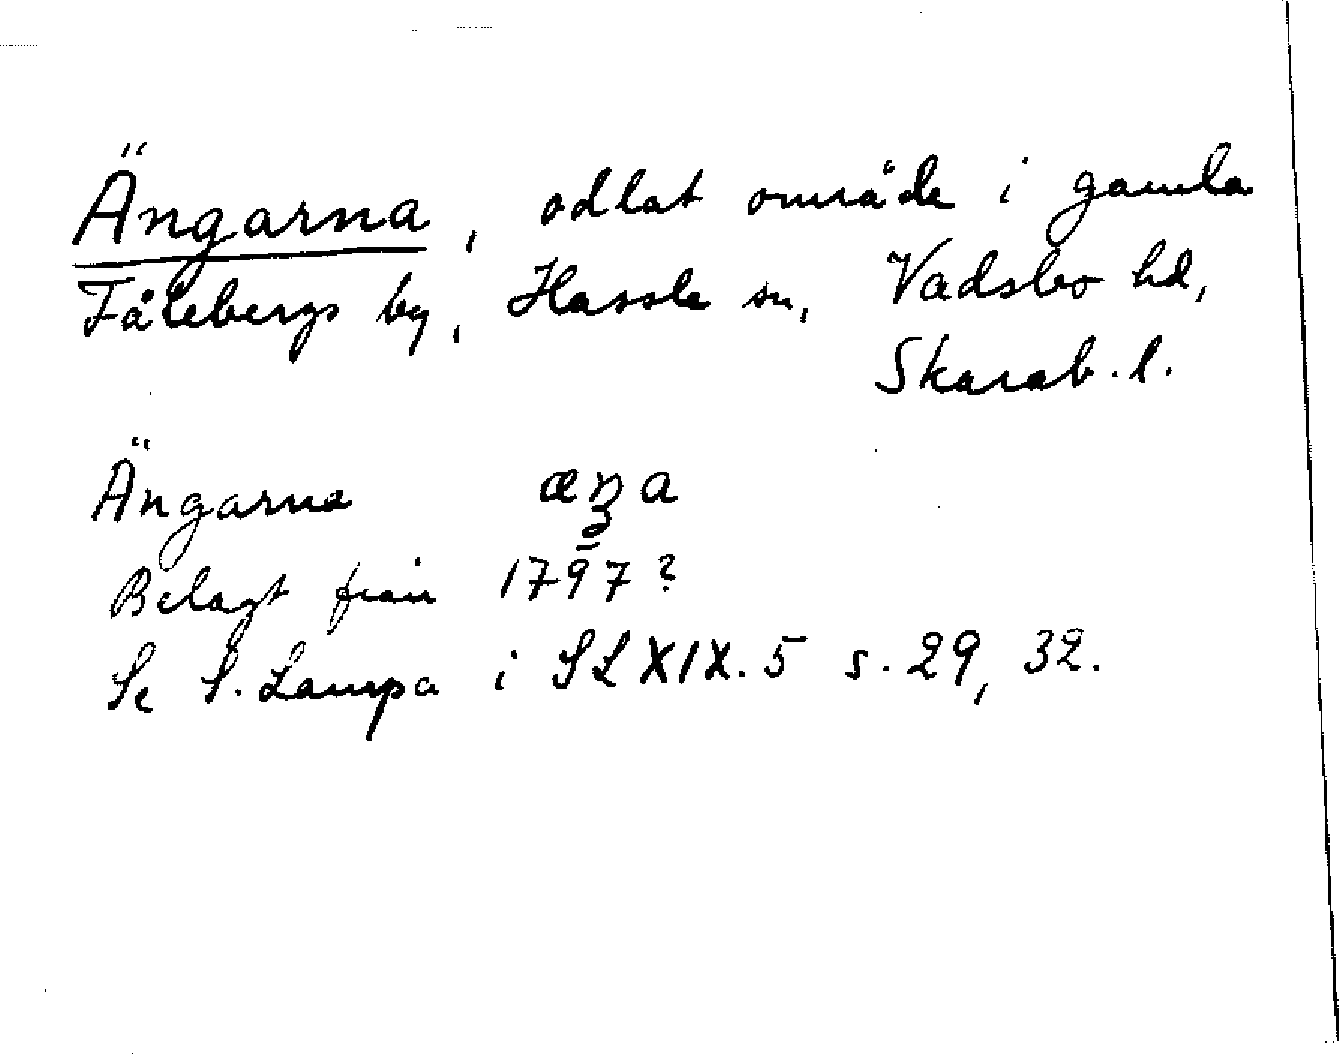 Ängarna, odlat område i gamla
Fålebergs by, Hassle sn, Vadsbo hd,
Skarab. l.
Ängarna
Belagt från 1797?
Se S. Lampa i SLXIX.5 s. 29, 32.